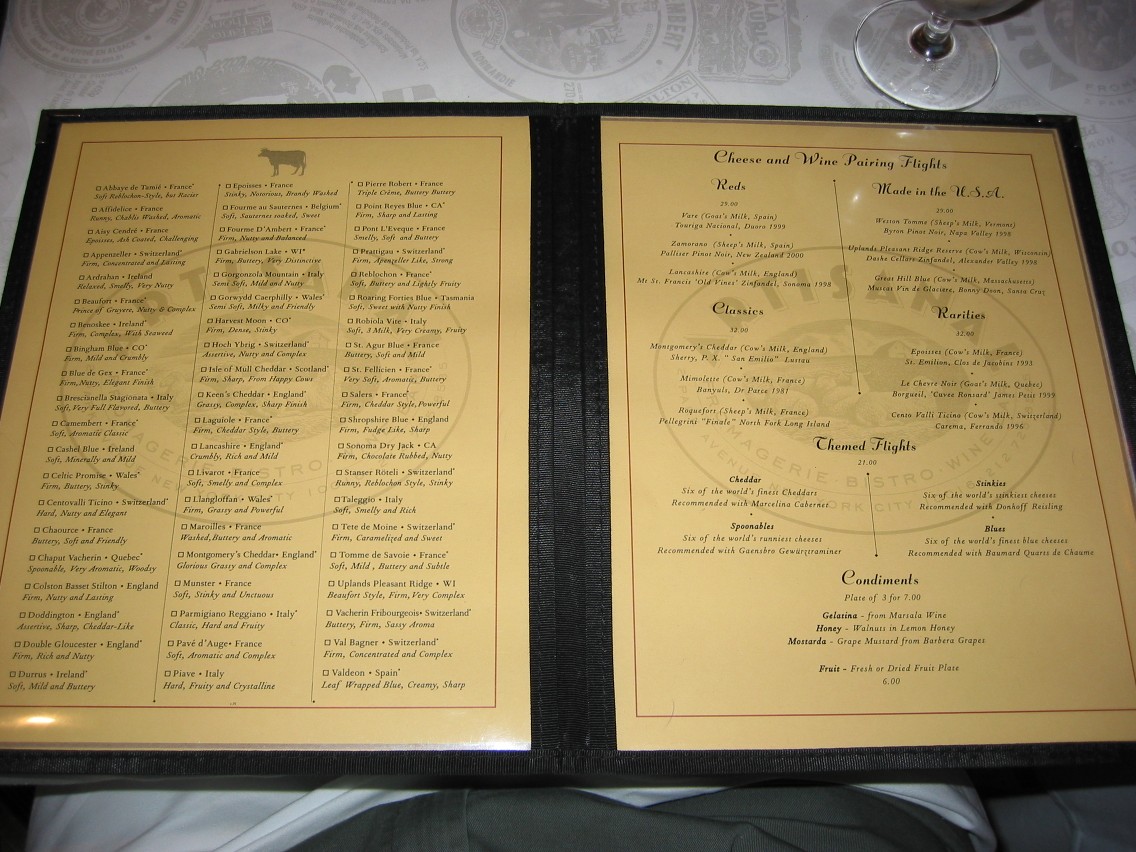 ☐ Abbaye de Tamié • France*
Soft Reblochon-Style, but Racier
☐ Affidelice • France
Runny, Chablis Washed, Aromatic
☐ Aisy Cendré • France
Epoisses, Ash Coated, Challenging
☐ Appenzeller • Switzerland*
Firm, Concentrated and Lasting
☐ Ardrahan • Ireland
Relaxed, Smelly, Very Nutty
☐ Beaufort • France*
Prince of Gruyere, Nutty & Complex
☐ Benoskee • Ireland*
Firm, Complex, With Seaweed
☐ Bingham Blue • CO*
Firm, Mild and Crumbly
☐ Blue de Gex • France*
Firm, Nutty, Elegant Finish
☐ Brescianella Stagionata • Italy
Soft, Very Full Flavored, Buttery
☐ Camembert • France*
Soft, Aromatic Classic
☐ Cashel Blue • Ireland
Soft, Minerally and Mild
☐ Celtic Promise • Wales*
Firm, Buttery, Stinky
☐ Centovalli Ticino • Switzerland*
Hard, Nutty and Elegant
☐ Chaource • France
Buttery, Soft and Friendly
☐ Chaput Vacherin • Quebec*
Spoonable, Very Aromatic, Woodsy
☐ Colston Basset Stilton • England
Firm, Nutty and Lasting
☐ Doddington • England*
Assertive, Sharp, Cheddar-Like
☐ Double Gloucester • England*
Firm, Rich and Nutty
☐ Durrus • Ireland*
Soft, Mild and Buttery
☐ Epoisses • France
Stinky, Notorious, Brandy Washed
☐ Fourme au Sauternes • Belgium*
Soft, Sauternes soaked, Sweet
☐ Fourme D'Ambert • France*
Firm, Nutty and Balanced
☐ Gabrielson Lake • WI*
Firm, Buttery, Very Distinctive
☐ Gorgonzola Mountain • Italy
Semi Soft, Mild and Nutty
☐ Gorwydd Caerphilly • Wales*
Semi Soft, Milky and Friendly
☐ Harvest Moon • CO*
Firm, Dense, Stinky
☐ Hoch Ybrig • Switzerland*
Assertive, Nutty and Complex
☐ Isle of Mull Cheddar • Scotland*
Firm, Sharp, From Happy Cows
☐ Keen's Cheddar • England*
Grassy, Complex, Sharp Finish
☐ Laguiole • France*
Firm, Cheddar Style, Buttery
☐ Lancashire • England*
Crumbly, Rich and Mild
☐ Livarot • France
Soft, Smelly and Complex
☐ Llangloffan • Wales*
Firm, Grassy and Powerful
☐ Maroilles • France
Washed, Buttery and Aromatic
☐ Montgomery's Cheddar• England*
Glorious Grassy and Complex
☐ Munster • France
Soft, Stinky and Unctuous
☐ Parmigiano Reggiano • Italy*
Classic, Hard and Fruity
☐ Pavé d'Auge• France
Soft, Aromatic and Complex
☐ Piave • Italy
Hard, Fruity and Crystalline
☐ Pierre Robert • France
Triple Crème, Buttery Buttery
☐ Point Reyes Blue • CA*
Firm, Sharp and Lasting
☐ Pont L'Eveque • France
Smelly, Soft and Buttery
☐ Prattigau • Switzerland*
Firm, Apengeller Like, Strong
☐ Reblochon • France*
Soft, Buttery and Lightly Fruity
☐ Roaring Forties Blue • Tasmania
Soft, Sweet with Nutty Finish
☐ Robiola Vite • Italy
Soft, 3 Milk, Very Creamy, Fruity
☐ St. Agur Blue • France
Buttery, Soft and Mild
☐ St. Fellicien • France*
Very Soft, Aromatic, Buttery
☐ Salers • France*
Firm, Cheddar Style, Powerful
☐ Shropshire Blue • England
Firm, Fudge Like, Sharp
☐ Sonoma Dry Jack • CA
Firm, Chocolate Rubbed, Nutty
☐ Stanser Röteli • Switzerland*
Runny, Reblochon Style, Stinky
☐ Taleggio • Italy
Soft, Smelly and Rich
☐ Tete de Moine • Switzerland*
Firm, Caramelized and Sweet
☐ Tomme de Savoie • France*
Soft, Mild , Buttery and Subtle
☐ Uplands Pleasant Ridge • WI
Beaufort Style, Firm, Very Complex
☐ Vacherin Fribourgeois• Switzerland*
Buttery, Firm, Sassy Aroma
☐ Val Bagner • Switzerland*
Firm, Concentrated and Complex
☐ Valdeon • Spain*
Leaf Wrapped Blue, Creamy, Sharp
Cheese and Wine Pairing Flights
Reds
29.00
Vare (Goat's Milk, Spain)
Touriga Nacional, Duoro 1999
Zamorano (Sheep's Milk, Spain)
Palliser Pinot Noir, New Zealand 2000
Lancashire (Cow's Milk, England)
Mt St. Francis 'Old Vines' Zinfandel, Sonoma 1998
Classics
32.00
Montgomery's Cheddar (Cow's Milk, England)
Sherry, P. X. " San Emilio" Lustau
Mimolette (Cow's Milk, France)
Banyuls, Dr Parce 1981
Roquefort (Sheep's Milk, France)
Pellegrini "Finale" North Fork Long Island
Made in the U.S.A.
29.00
Weston Tomme (Sheep's Milk, Vermont)
Byron Pinot Noir, Napa Valley 1998
Uplands Pleasant Ridge Reserve (Cow's Milk, Wisconsin)
Dashe Cellars Zinfandel, Alexander Valley 1998
Great Hill Blue (Cow's Milk, Massachusetts)
Muscat Vin de Glaciere, Bonny Doon, Santa Cruz
Rarities
32.00
Epoisses (Cow's Milk, France)
St. Emilion, Clos de Jacobins 1993
Le Chevre Noir (Goat's Milk, Quebec)
Borgueil, 'Cuvee Ronsard' James Petit 1999
Cento Valli Ticino (Cow's Milk, Switzerland)
Carema, Ferrando 1996
Themed Flights
21.00
Cheddar
Six of the world's finest Cheddars
Recommended with Marcelina Cabernet
Spoonables
Six of the world's runniest cheeses
Recommended with Gaensbro Gewürztraminer
Stinkies
Six of the world's stinkiest cheeses
Recommended with Donhoff Reisling
Blues
Six of the world's finest blue cheeses
Recommended with Baumard Quares de Chaume
Condiments
Plate of 3 for 7.00
Gelatina - from Marsala Wine
Honey - Walnuts in Lemon Honey
Mostarda - Grape Mustard from Barbera Grapes
Fruit - Fresh or Dried Fruit Plate
6.00